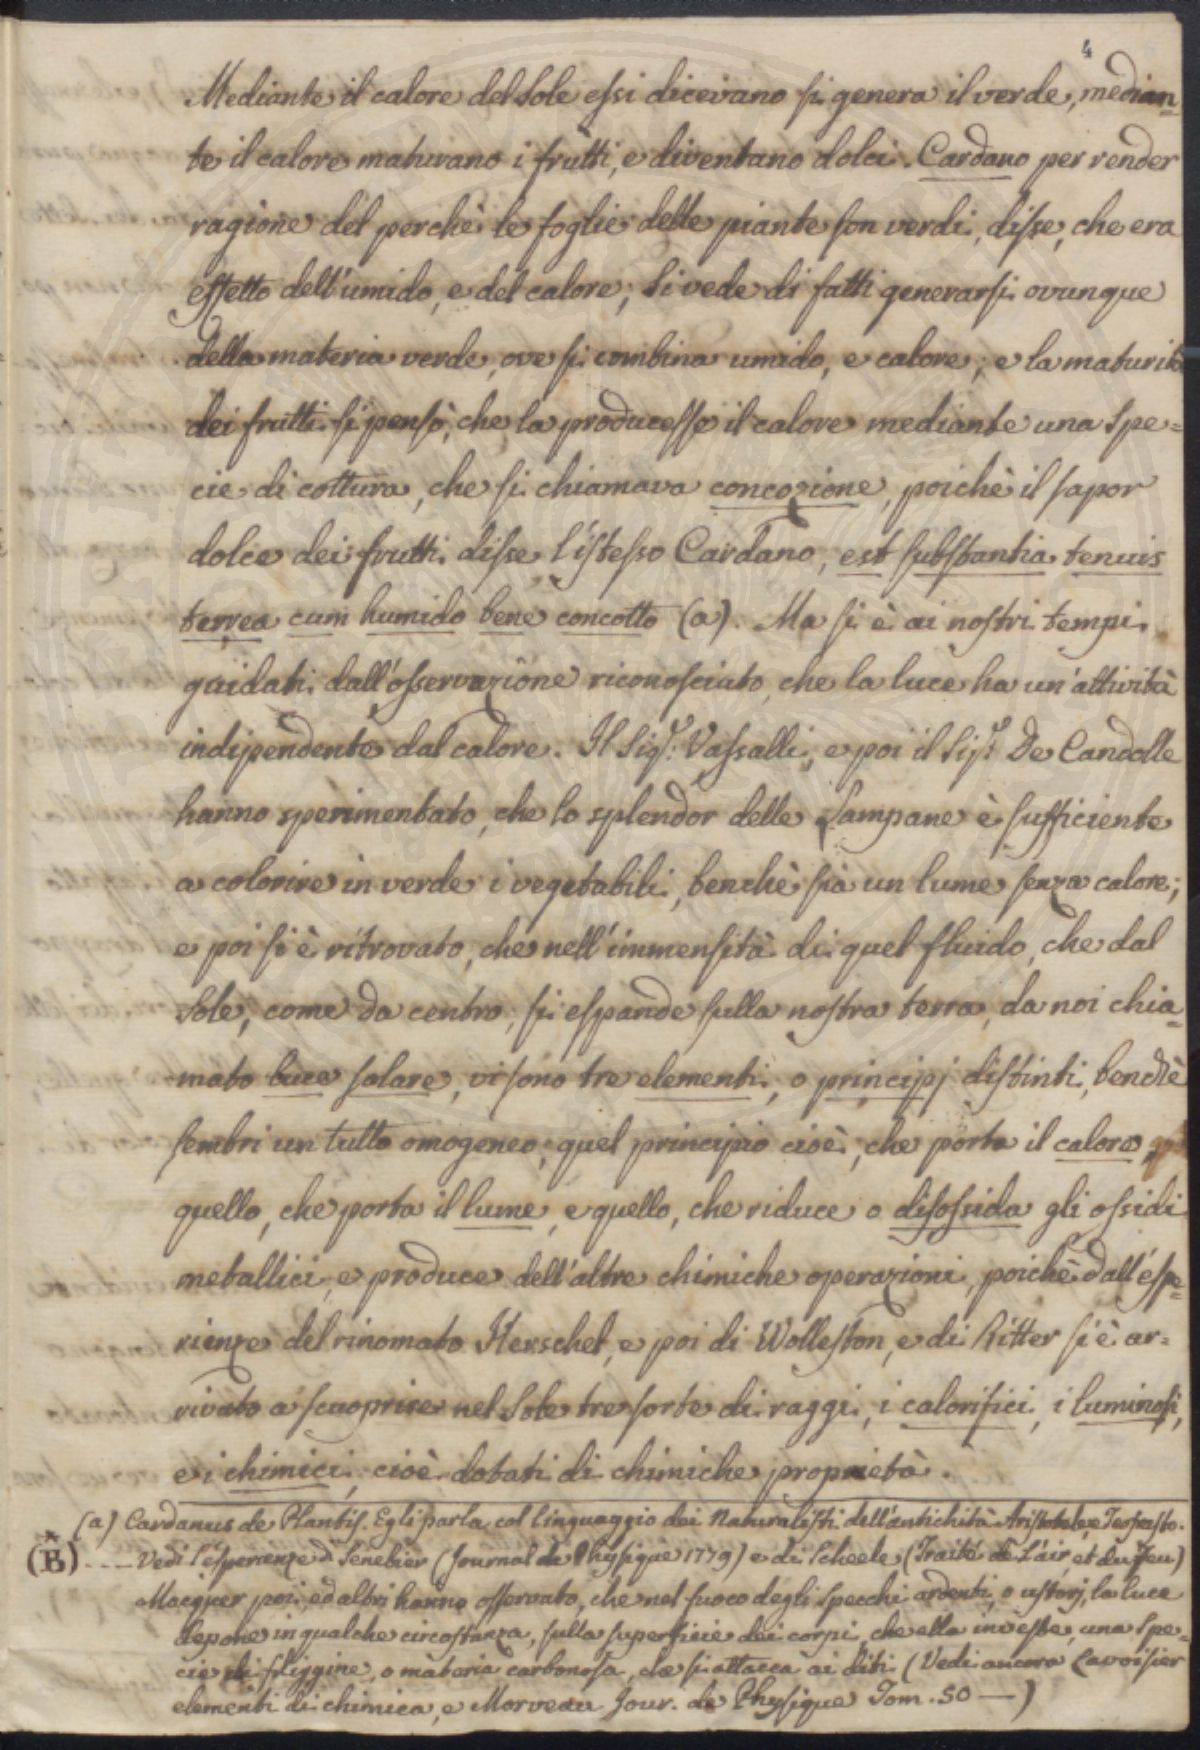 4
Mediante il calore del Sole essi dicevano si genera il verde, median=
te il calore maturano i frutti, e diventano dolci. Cardano per render
ragione del perchè le foglie delle piante son verdi, disse, che era
effetto dell'umido, e del calore; Si vede di fatti generarsi ovunque
della materia verde, ove si combina umido, e calore; e la maturità
dei frutti si pensò, che la producesse il calore mediante una spe=
cie di cottura, che si chiamava concozione, poichè il sapor
dolce dei frutti disse l'istesso Cardano, est substantia tenuis
terrea cum humido bene concotto (a). Ma si è ai nostri tempi
guidati dall'osservazione riconosciuto, che la luce ha un'attività
indipendente dal calore. Il Sigr. Vassalli, e poi il Sigr. De Candolle
hanno sperimentato, che lo splendor delle Lampane è sufficiente
a colorire in verde i vegetabili, benchè sia un lume senza calore;
e poi si è ritrovato, che nell'immensità di quel fluido, che dal
Sole, come da centro, si espande sulla nostra terra, da noi chia=
mato luce solare, vi sono tre elementi, o principj distinti, benchè
sembri un tutto omogeneo; quel principio cioè, che porta il calore,
quello, che porta il lume, e quello, che riduce o disossida gli ossidi
metallici, e produce dell'altre chimiche operazioni, poichè dall'espe=
rienze del rinomato Herschel, e poi di Wolleston, e di Ritter si è ar=
rivato a scuoprire nel Sole tre sorte di raggi, i calorifici, i luminosi,
e i chimici, cioè dotati di chimiche proprietà.
(a) Cardanus de Plantis. Egli parla col linguaggio dei Naturalisti dell'antichità Aristotele, e Teofrasto.
(B) ---- Vedi l'esperienze di Senebier (Journal de Physique 1779) e di Scheele (Traité de L'air, et du feu)
Macquer poi, ed altri hanno osservato, che nel fuoco degli specchi ardenti, o ustorj, la luce
depone in qualche circostanza, sulla superficie dei corpi, che ella investe, una spe=
cie di filiggine, o materia carbonosa, che si attacca ai diti (Vedi ancora Lavoisier
elementi di chimica, e Morveau Jour. de Physique Tom. 50 —)